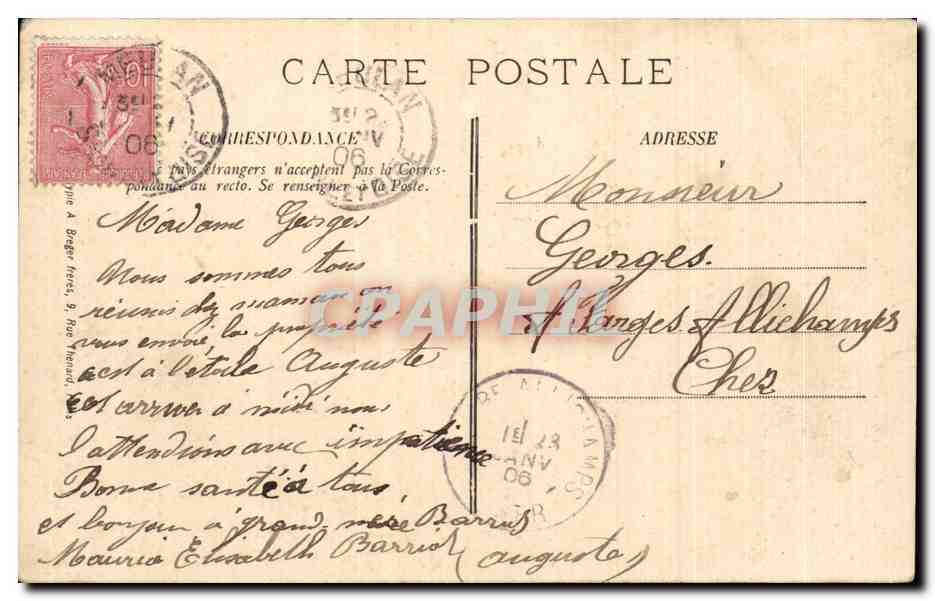 CARTE POSTALE
CORRESPONDANCE
pays étrangers n'acceptent pas la Corres-
pondance au recto. Se renseigner à la Poste.
Madame Georges
Nous sommes tous
réunis maman
vous envoi la propriété
à l'étoile Auguste
est arriver à midi nous
l'attendions avec impatience
Bonne santé à tous
et bonjour à grand mère Barriol
Elisabeth Barriol (Auguste)
ADRESSE
Monsieur
Georges.
A Farges Allichamps
Cher
A Breger frères, 9, Rue Thenard,
MEULAN
06
MEULAN
06
ET OISE
ALLICHAMPS
1E 23
JANV
06
CHER
CPAPHIL